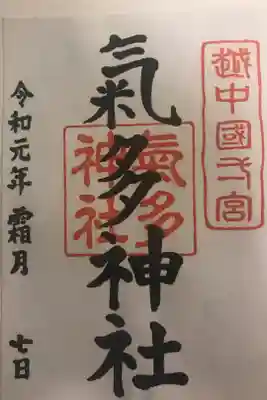 越中國一宮
氣多神社
氣多神社
令和元年霜月 七日